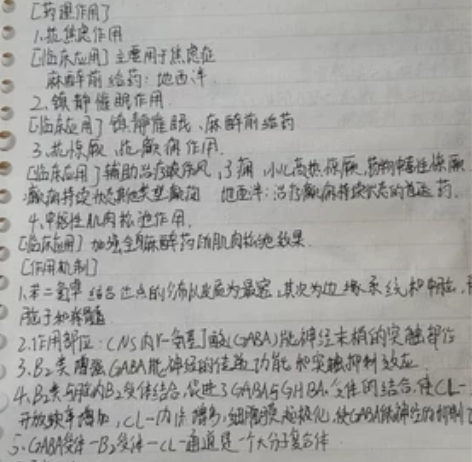 [药理作用]
1.抗焦虑作用
[临床应用] 主要用于焦虑症
麻醉前给药:地西泮
2.镇静催眠作用
[临床应用] 镇静催眠、麻醉前给药
3.抗惊厥、抗癫痫作用
[临床应用] 辅助治疗破伤风,子痫,小儿高热惊厥,药物中毒性惊厥
癫痫持续状态 地西泮:治疗癫痫持续状态的首选药.
4.中枢性肌肉松弛作用.
[临床应用] 加强全身麻醉药的肌肉松弛效果.
[作用机制]
1.苯二氮䓬结合位点的分布以皮质为最密,其次为边缘系统和中脑,
脑干和脊髓
2.作用部位:CNS内γ-氨基丁酸(GABA)能神经末梢的突触部位
3.BZ类增强GABA能神经的传递功能和突触抑制效应
4.BZ类与脑内BZ受体结合,促进了GABA与受体的结合,使CL-
开放频率增加,CL-内流增多,细胞膜超极化,使GABA能神经的抑制
5.GABA受体-BZ受体-CL-通道是一个大分子复合体